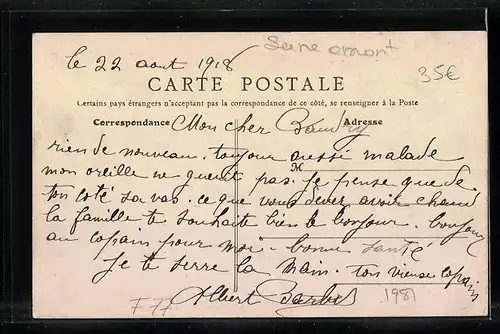 le 22 aout 1918
Seine
35€
CARTE POSTALE
Certains pays étrangers n'acceptant pas la correspondance de ce côté, se renseigner à la Poste
Correspondance
Adresse
Mon cher
M
rien de nouveau. toujour aussi malade
mon oreille ne guerit pas. Je pense que de
ton coté sa vas. ce que vous dever avoir chaud
la famille te souhaite bien le bonjour. bonjour
au copains pour moi. bonne santé
Je te serre la main. ton vieuse copain
Albert
F77
1981